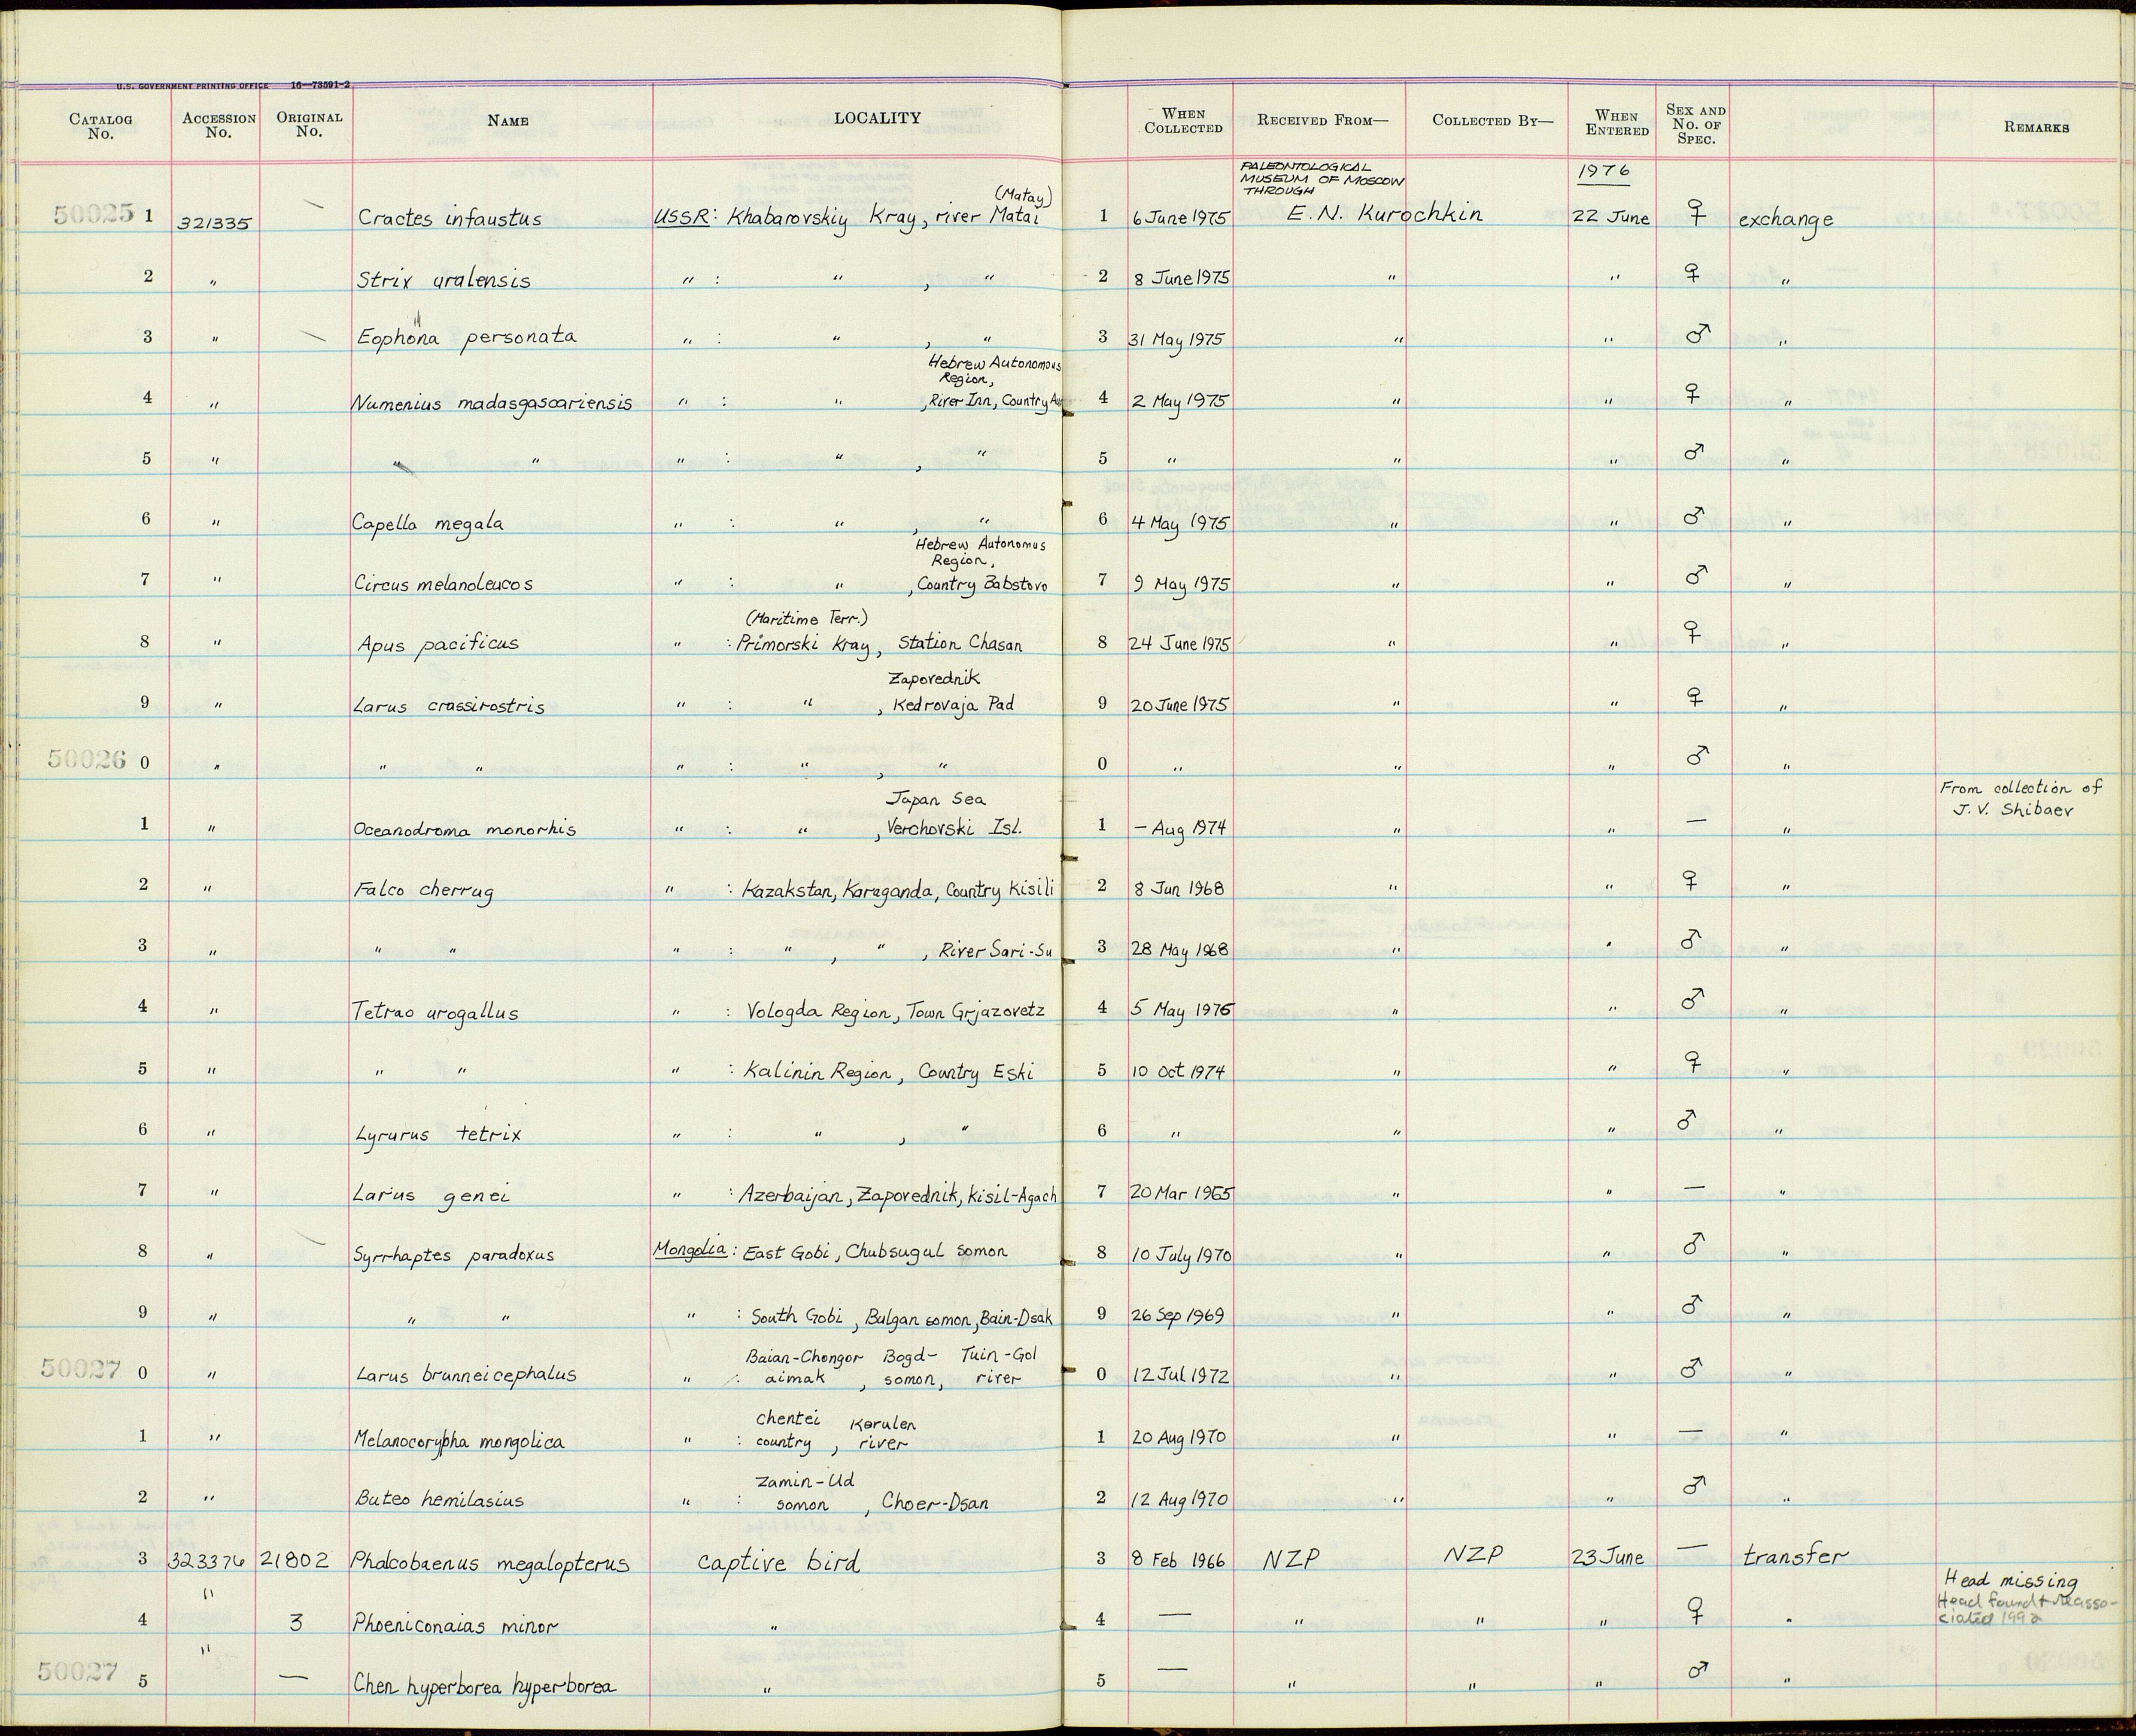 U.S. GOVERNMENT PRINTING OFFICE 16—73591-2
CATALOG No. ACCESSION No. ORIGINAL No. NAME LOCALITY WHEN COLLECTED RECEIVED FROM— COLLECTED BY— WHEN ENTERED SEX AND No. OF SPEC. REMARKS
PALEONTOLOGICAL MUSEUM OF MOSCOW THROUGH 1976
(Matay)
50025 1 321335 — Cractes infaustus USSR: Khabarovskiy Kray, river Matai 1 6 June 1975 E. N. Kurochkin 22 June ♀ exchange
2 " Strix uralensis " : " , " 2 8 June 1975 " " ♀ "
3 " — Eophona personata " : " , " 3 31 May 1975 " " ♂ "
Hebrew Autonomous Region,
4 " Numenius madasgascariensis " : " , River Inn, Country 4 2 May 1975 " " ♀ "
5 " " " " : " , " 5 " " " ♂ "
6 " Capella megala " : " , " 6 4 May 1975 " " ♂ "
Hebrew Autonomus Region,
7 " Circus melanoleucos " : " , Country Babstovo 7 9 May 1975 " " ♂ "
(Maritime Terr.)
8 " Apus pacificus " : Primorski Kray, Station Chasan 8 24 June 1975 " " ♀ "
Zapovednik
9 " Larus crassirostris " : " , Kedrovaja Pad 9 20 June 1975 " " ♀ "
50026 0 " " " " : " , " 0 " " " ♂ "
Japan Sea From collection of
1 " Oceanodroma monorhis " : " , Verchovski Isl. 1 — Aug 1974 " " — " J. V. Shibaev
2 " Falco cherrug " : Kazakstan, Karaganda, Country Kisili 2 8 Jun 1968 " " ♀ "
3 " " " " : " , " , River Sari-Su 3 28 May 1968 " " ♂ "
4 " Tetrao urogallus " : Vologda Region, Town Grjazovetz 4 5 May 1975 " " ♂ "
5 " " " " : Kalinin Region, Country Eski 5 10 Oct 1974 " " ♀ "
6 " Lyrurus tetrix " : " , " 6 " " " ♂ "
7 " Larus genei " : Azerbaijan, Zapovednik, Kisil-Agach 7 20 Mar 1965 " " — "
8 " — Syrrhaptes paradoxus Mongolia: East Gobi, Chubsugul somon 8 10 July 1970 " " ♂ "
9 " " " " : South Gobi, Bulgan somon, Bain-Dsak 9 26 Sep 1969 " " ♂ "
Baian-Chongor Bogd- Tuin-Gol
50027 0 " Larus brunneicephalus " : aimak , somon, river 0 12 Jul 1972 " " ♂ "
Chentei Kerulen
1 " Melanocorypha mongolica " : country , river 1 20 Aug 1970 " " — "
Zamin-Ud
2 " Buteo hemilasius " : somon , Choer-Dsan 2 12 Aug 1970 " " ♂ "
3 323376 21802 Phalcobaenus megalopterus captive bird 3 8 Feb 1966 NZP NZP 23 June — transfer
Head missing
4 " 3 Phoeniconaias minor " 4 — " " " ♀ " Head found + reasso-
ciated 1992
50027 5 " — Chen hyperborea hyperborea " 5 — " " " ♂ "